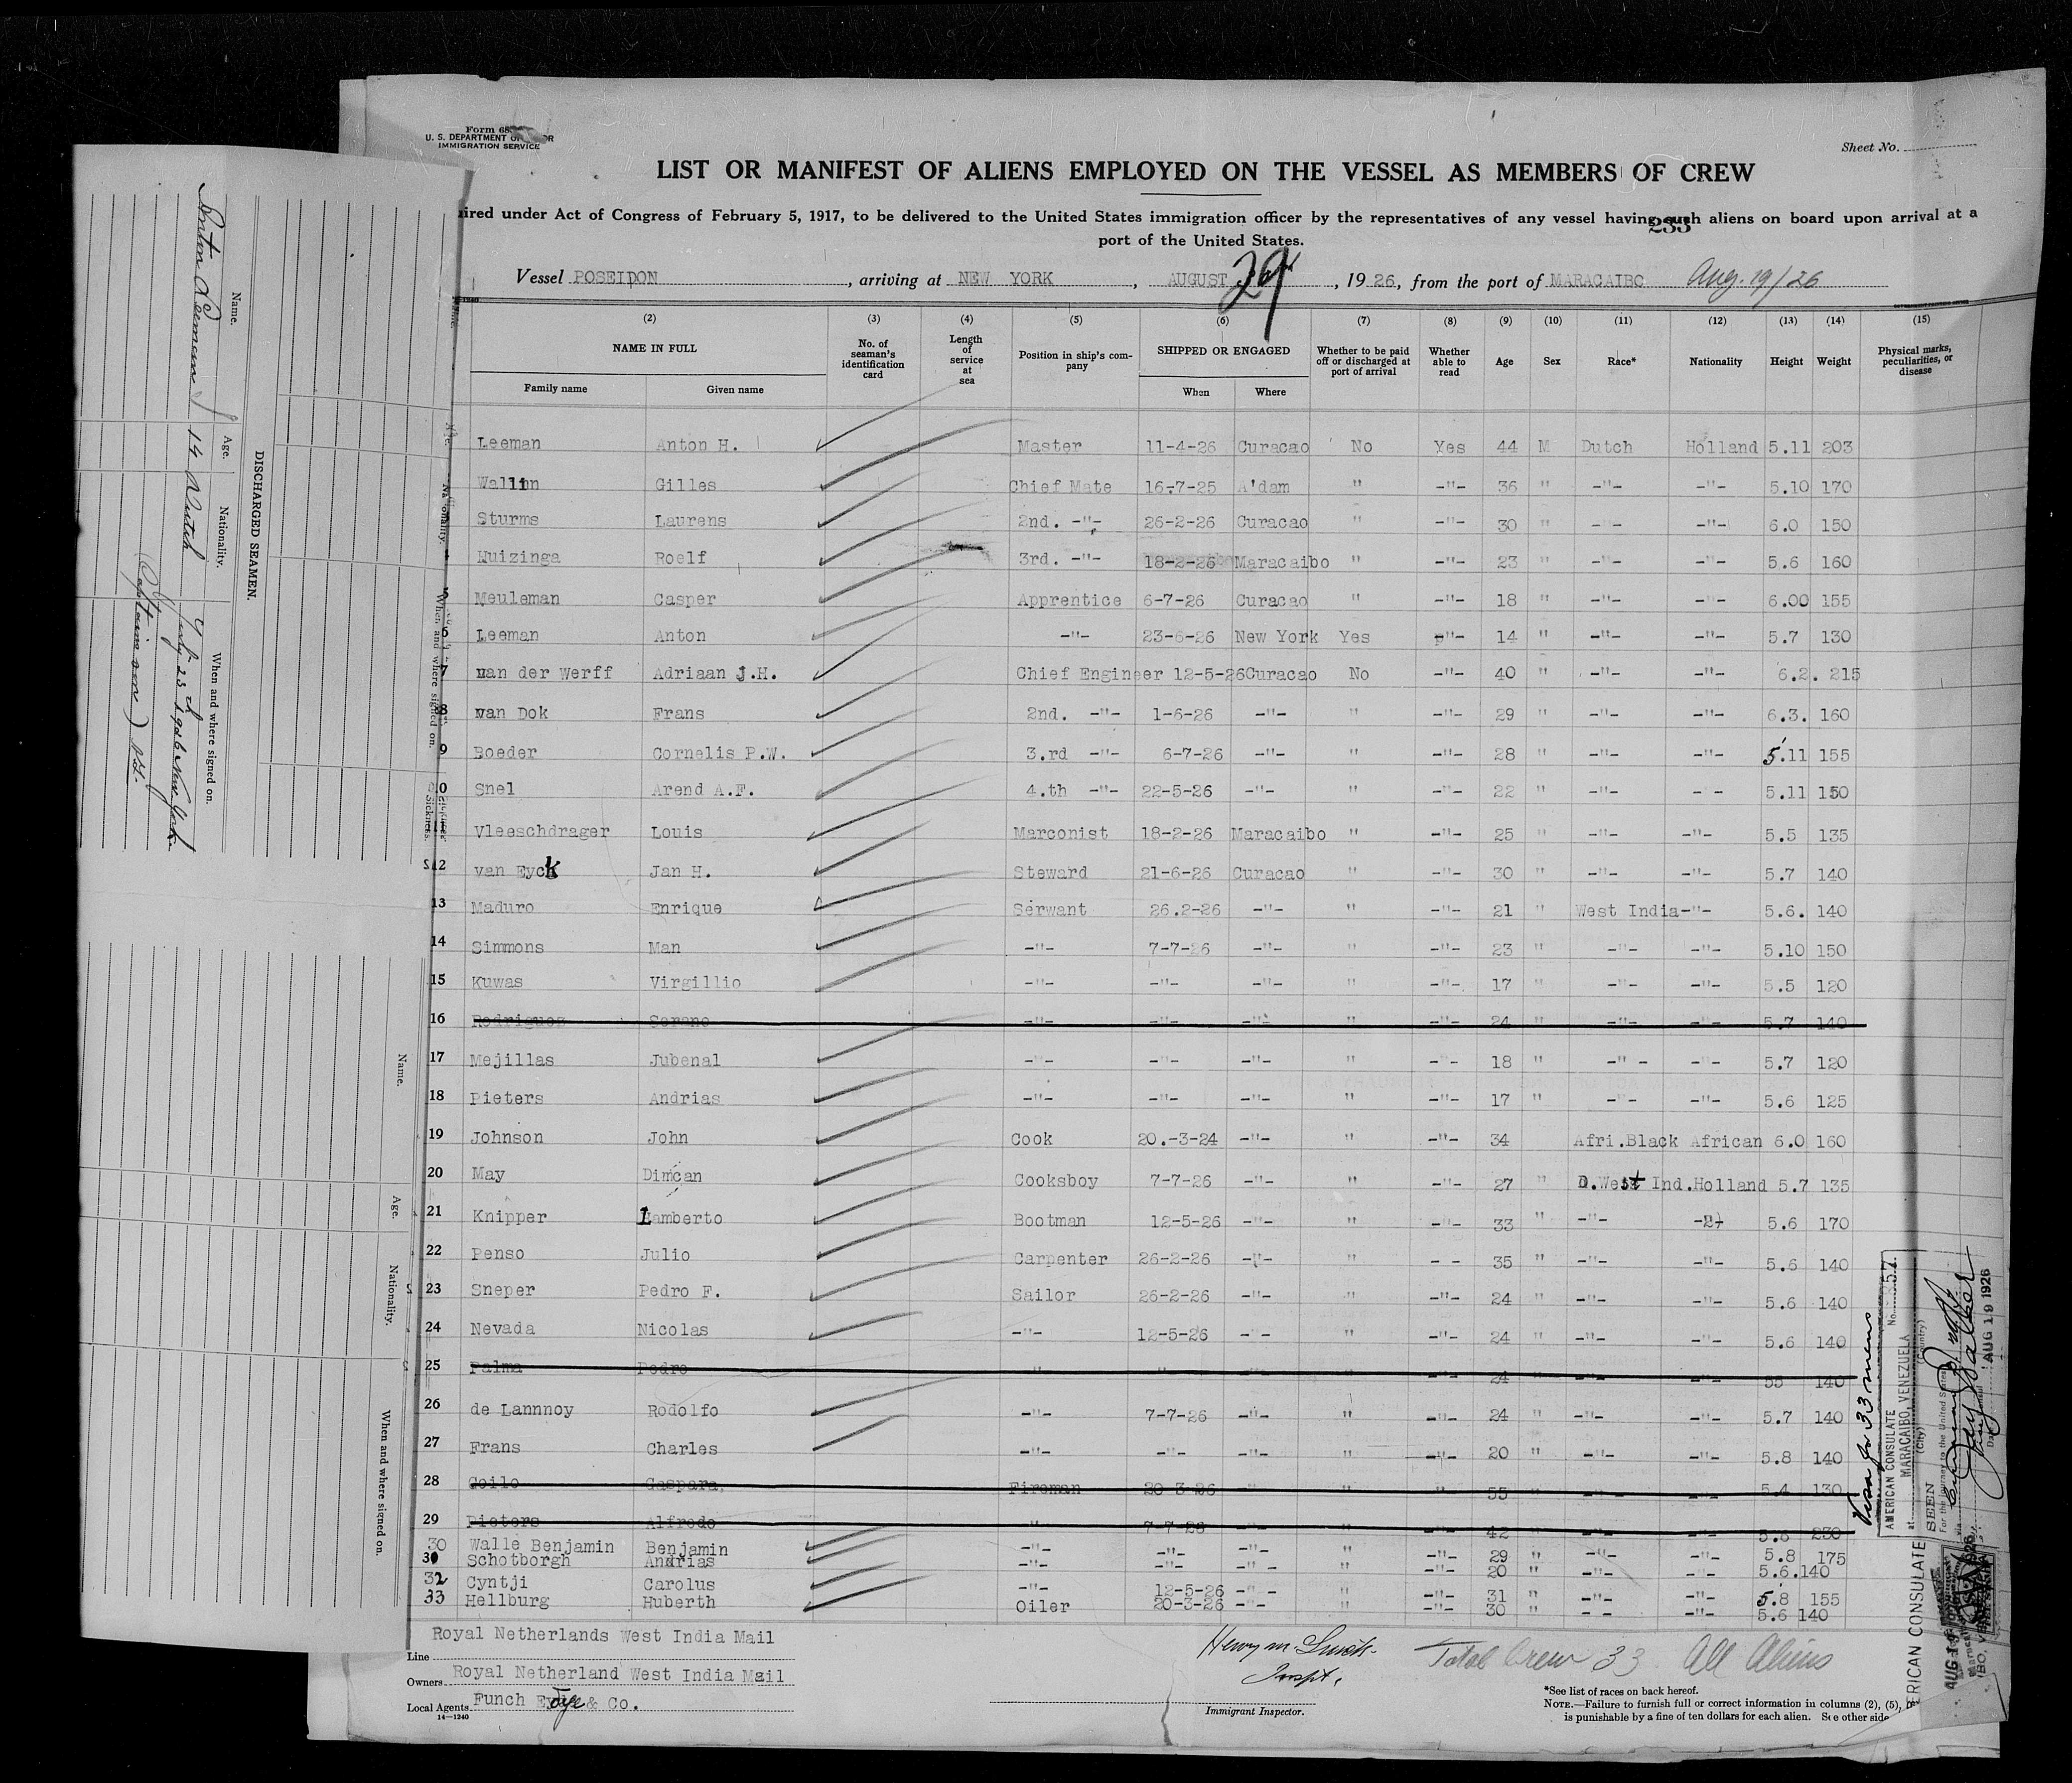 Form 68
U. S. DEPARTMENT OF LABOR
IMMIGRATION SERVICE
Sheet No.
LIST OR MANIFEST OF ALIENS EMPLOYED ON THE VESSEL AS MEMBERS OF CREW
ired under Act of Congress of February 5, 1917, to be delivered to the United States immigration officer by the representatives of any vessel having such aliens on board upon arrival at a
233
port of the United States.
Vessel POSEIDON, arriving at NEW YORK, AUGUST 29, 1926, from the port of MARACAIBO Aug. 19/26
(2) (3) (4) (5) (6) (7) (8) (9) (10) (11) (12) (13) (14) (15)
NAME IN FULL
Family name Given name
No. of seaman's identification card
Length of service at sea
Position in ship's company
SHIPPED OR ENGAGED
When Where
Whether to be paid off or discharged at port of arrival
Whether able to read
Age
Sex
Race*
Nationality
Height
Weight
Physical marks, peculiarities, or disease
Leeman Anton H. Master 11-4-26 Curacao No Yes 44 M Dutch Holland 5.11 203
Wallin Gilles Chief Mate 16-7-25 A'dam " -"- 36 " -"- -"- 5.10 170
Sturms Laurens 2nd. -"- 26-2-26 Curacao " -"- 30 " -"- -"- 6.0 150
Huizinga Roelf 3rd. -"- 18-2-26 Maracaibo " -"- 23 " -"- -"- 5.6 160
5 Meuleman Casper Apprentice 6-7-26 Curacao " -"- 18 " -"- -"- 6.00 155
6 Leeman Anton -"- 23-6-26 New York Yes -"- 14 " -"- -"- 5.7 130
7 van der Werff Adriaan J.H. Chief Engineer 12-5-26 Curacao No -"- 40 " -"- -"- 6.2. 215
8 van Dok Frans 2nd. -"- 1-6-26 -"- " -"- 29 " -"- -"- 6.3. 160
9 Boeder Cornelis P.W. 3.rd -"- 6-7-26 -"- " -"- 28 " -"- -"- 5.11 155
10 Snel Arend A.F. 4.th -"- 22-5-26 -"- " -"- 22 " -"- - - 5.11 150
11 Vleeschdrager Louis Marconist 18-2-26 Maracaibo " -"- 25 " -"- -"- 5.5 135
12 van Eyck Jan H. Steward 21-6-26 Curacao " -"- 30 " -"- -"- 5.7 140
13 Maduro Enrique Servant 26.2-26 -"- " -"- 21 " West India -"- 5.6. 140
14 Simmons Man -"- 7-7-26 -"- " -"- 23 " -"- -"- 5.10 150
15 Kuwas Virgillio -"- -"- -"- " -"- 17 " -"- -"- 5.5 120
16 Rodriguez Sorano -"- -"- -"- " -"- 24 " -"- -"- 5.7 140
17 Mejillas Jubenal -"- -"- -"- " -"- 18 " -"- -"- 5.7 120
18 Pieters Andrias -"- -"- -"- " -"- 17 " -"- -"- 5.6 125
19 Johnson John Cook 20.-3-24 -"- " -"- 34 Afri.Black African 6.0 160
20 May Dimcan Cooksboy 7-7-26 -"- " -"- 27 " D.West Ind. Holland 5.7 135
21 Knipper Lamberto Bootman 12-5-26 -"- " -"- 33 " -"- -"- 5.6 170
22 Penso Julio Carpenter 26-2-26 -"- " - - 35 " -"- -"- 5.6 140
23 Sneper Pedro F. Sailor 26-2-26 -"- " -"- 24 " -"- -"- 5.6 140
24 Nevada Nicolas -"- 12-5-26 -"- " -"- 24 " -"- -"- 5.6 140
25 Palma Pedro " " -"- " -"- 24 " -"- -"- 55 140
26 de Lannnoy Rodolfo -"- 7-7-26 -"- " -"- 24 " -"- -"- 5.7 140
27 Frans Charles -"- -"- -"- " -"- 20 " -"- -"- 5.8 140
28 Coilo Caspara Fireman 20-3-26 -"- " " 55 " -"- -"- 5.4 130
29 Pieters Alfredo " 7-7-26 -"- " -"- 42 " -"- -"- 5.8 230
30 Walle Benjamin Benjamin -"- -"- -"- " -"- 29 " -"- -"- 5.8 175
31 Schotborgh Andrias -"- -"- -"- " -"- 20 " -"- -"- 5.6.140
32 Cyntji Carolus -"- 12-5-26 -"- " -"- 31 " -"- -"- 5.8 155
33 Hellburg Huberth Oiler 20-3-26 -"- " -"- 30 " - - -"- 5.6 140
Royal Netherlands West India Mail
Line
Owners Royal Netherland West India Mail
Local Agents Funch Edye & Co.
14—1240
Henry M.
Inspt.
Immigrant Inspector.
Total Crew 33 All Aliens
*See list of races on back hereof.
NOTE.—Failure to furnish full or correct information in columns (2), (5),
is punishable by a fine of ten dollars for each alien. See other side
Visa for 33 mens
AMERICAN CONSULATE No. 57
at MARACAIBO, VENEZUELA
(City) (Country)
SEEN
For the journey to the United States
via
Date AUG 19 1926
RICAN CONSULATE
AUG 19 1926
DISCHARGED SEAMEN.
Name. Age. Nationality. When and where signed on.
Anton Leeman 14 Dutch July 23d 1926 New York
(Captains son)
Name. Age. Nationality. When and where signed on.
Nationality.
When and where signed on.
Sickness.